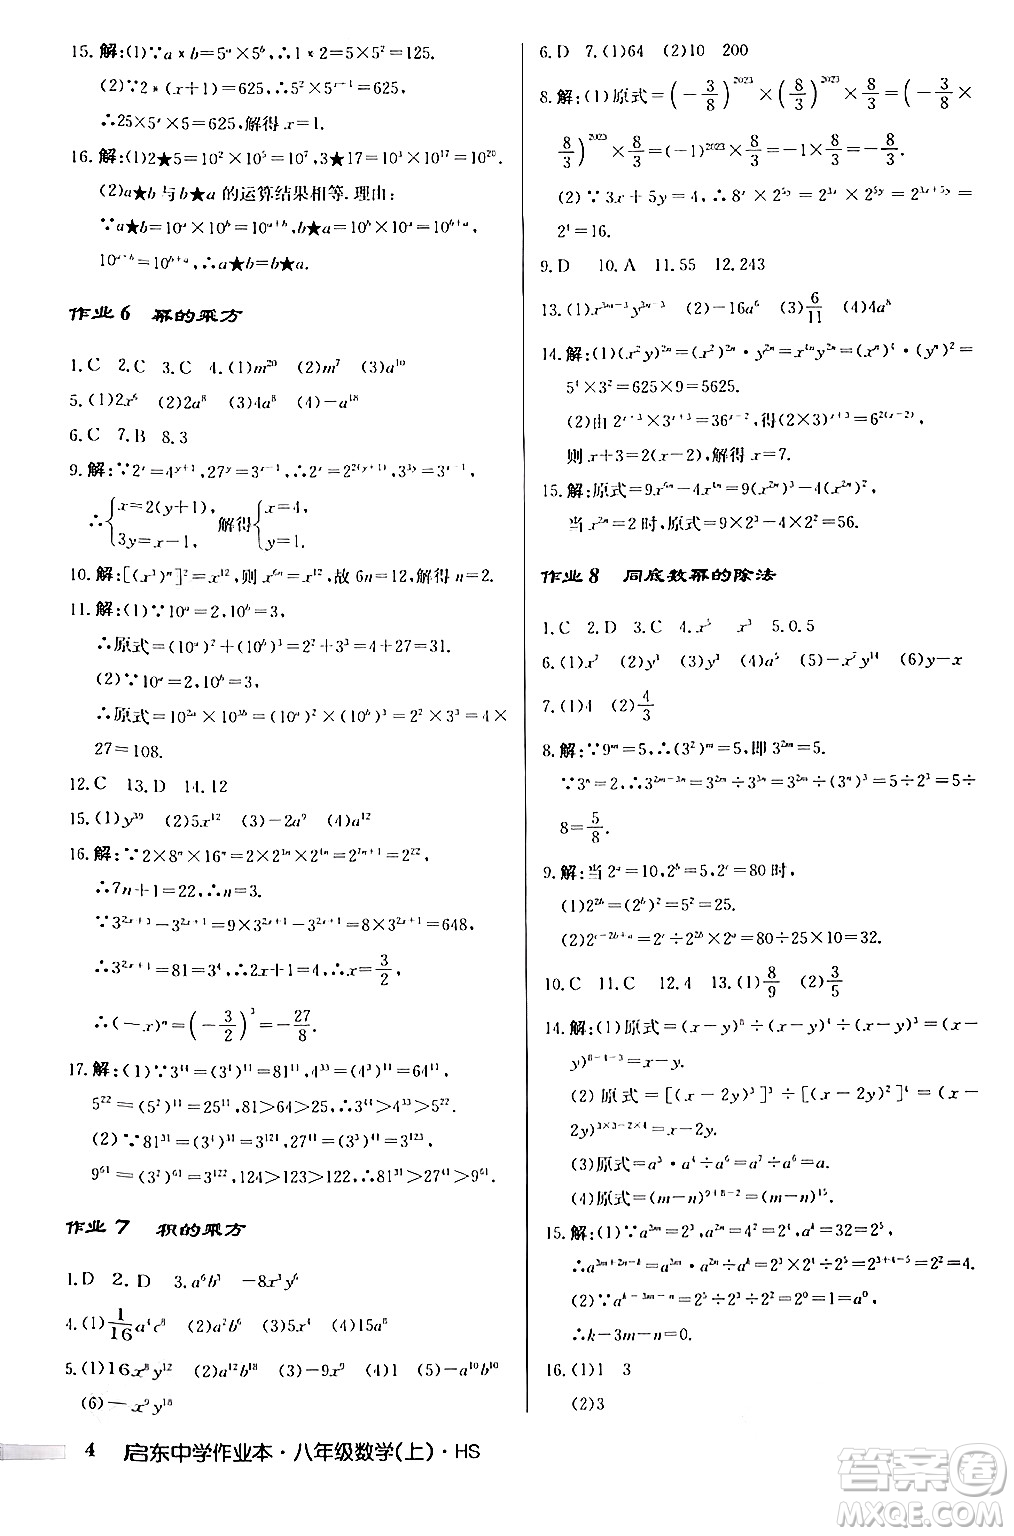 15. 解:(1)∵a*b=5ᵃ×5ᵇ,∴1*2=5¹×5²=125.
(2)∵2*(x+1)=625,∴5²×5ˣ⁺¹=625,
∴25×5ˣ×5=625,解得 x=1.
16. 解:(1)2★5=10²×10⁵=10⁷,3★17=10³×10¹⁷=10²⁰.
(2)a★b 与 b★a 的运算结果相等.理由:
∵a★b=10ᵃ×10ᵇ=10ᵃ⁺ᵇ,b★a=10ᵇ×10ᵃ=
10ᵃ⁺ᵇ=10ᵇ⁺ᵃ,∴a★b=b★a.
作业 6 幂的乘方
1. C 2. C 3. C 4. (1)m²⁰ (2)m⁷ (3)a¹⁰
5. (1)2x⁶ (2)2a⁸ (3)4a⁸ (4)-a¹⁸
6. C 7. B 8. 3
9. 解:∵2ˣ=4ʸ⁺¹,27ʸ=3ˣ⁻¹,∴2ˣ=2²⁽ʸ⁺¹⁾,3³ʸ=3ˣ⁻¹,
∴{x=2(y+1), 3y=x-1, 解得{x=4, y=1.
10. 解:[(x³)ⁿ]²=x¹²,则 x⁶ⁿ=x¹²,故 6n=12,解得 n=2.
11. 解:(1)∵10ᵃ=2,10ᵇ=3,
∴原式=(10ᵃ)²+(10ᵇ)³=4+27=31.
(2)∵10ᵃ=2,10ᵇ=3,
∴原式=10²ᵃ×10³ᵇ=(10ᵃ)²×(10ᵇ)³=2²×3³=4×
27=108.
12. C 13. D 14. 12
15. (1)y³⁹ (2)5x¹² (3)-2a⁷ (4)a¹²
16. 解:∵2×8ⁿ×16ⁿ=2×2³ⁿ×2⁴ⁿ=2⁷ⁿ⁺¹=2²²,
∴7n+1=22,∴n=3.
∵3²ˣ⁺³-3²ˣ⁺¹=9×3²ˣ⁺¹-3²ˣ⁺¹=8×3²ˣ⁺¹=648,
∴3²ˣ⁺¹=81=3⁴,∴2x+1=4,∴x=3/2,
∴(-x)ⁿ=(-3/2)³=-27/8.
17. 解:(1)∵3⁴⁴=(3⁴)¹¹=81¹¹,4³³=(4³)¹¹=64¹¹,
5²²=(5²)¹¹=25¹¹,81>64>25,∴3⁴⁴>4³³>5²².
(2)∵81³¹=(3⁴)³¹=3¹²⁴,27⁴¹=(3³)⁴¹=3¹²³,
9⁶¹=(3²)⁶¹=3¹²²,124>123>122,∴81³¹>27⁴¹>9⁶¹.
作业 7 积的乘方
1. D 2. D 3. a⁶b³ -8x³y⁶
4. (1)1/16a⁴c⁸ (2)a²b⁶ (3)5x⁴ (4)15a⁸
5. (1)16x⁸y¹² (2)a¹²b¹⁸ (3)-9x⁹ (4)-a¹⁰b¹⁵ (5)x⁶
(6)-x⁹y¹⁸
6. D 7. (1)64 (2)10 200
8. 解:(1)原式=(-3/8)²⁰²³×(8/3)²⁰²³×8/3=(-3/8×
8/3)²⁰²³×8/3=(-1)²⁰²³×8/3=-8/3.
(2)∵3x+5y=4,∴8ˣ×2⁵ʸ=2³ˣ×2⁵ʸ=2³ˣ⁺⁵ʸ=
2⁴=16.
9. D 10. A 11. 55 12. 243
13. (1)x³ᵐ⁻³y³ᵐ (2)-16a⁶ (3)6/11 (4)4a⁸
14. 解:(1)(x²y)²ⁿ=(x²)²ⁿ·y²ⁿ=x⁴ⁿy²ⁿ=(xⁿ)⁴·(yⁿ)²=
5⁴×3²=625×9=5625.
(2)由 2ˣ⁺³×3ˣ⁺³=36ˣ⁻²,得(2×3)ˣ⁺³=6²⁽ˣ⁻²⁾,
则 x+3=2(x-2),解得 x=7.
15. 解:原式=9x⁶ⁿ-4x⁴ⁿ=9(x²ⁿ)³-4(x²ⁿ)²,
当 x²ⁿ=2 时,原式=9×2³-4×2²=56.
作业 8 同底数幂的除法
1. C 2. D 3. C 4. x⁵ x³ 5. 0.5
6. (1)x⁷ (2)y³ (3)y³ (4)a⁵ (5)-x⁷y¹⁴ (6)y-x
7. (1)4 (2)4/3
8. 解:∵9ᵐ=5,∴(3²)ᵐ=5,即 3²ᵐ=5.
∵3ⁿ=2,∴3²ᵐ⁻³ⁿ=3²ᵐ÷3³ⁿ=3²ᵐ÷(3ⁿ)³=5÷2³=5÷
8=5/8.
9. 解:当 2ᵃ=3,2ᵇ=5,2ᶜ=80 时,
(1)2²ᵇ=(2ᵇ)²=5²=25.
(2)2ᶜ⁻²ᵇ⁺ᵃ=2ᶜ÷2²ᵇ×2ᵃ=80÷25×3=9.6.
10. C 11. C 12. 4 13. (1)8/9 (2)3/5
14. 解:(1)原式=(x-y)⁸÷(x-y)⁴÷(x-y)³=(x-
y)⁸⁻⁴⁻³=x-y.
(2)原式=[(x-2y)³]³÷[(x-2y)²]⁴=(x-
2y)³ˣ³⁻²ˣ⁴=x-2y.
(3)原式=a³·a⁴÷a⁶=a⁷÷a⁶=a.
(4)原式=(m-n)⁹⁺⁸⁻²=(m-n)¹⁵.
15. 解:(1)∵a³ᵐ=2³,a²ⁿ=2⁴=4²=16,aᵏ=32=2⁵,
∴a³ᵐ⁺²ⁿ⁻ᵏ=a³ᵐ·a²ⁿ÷aᵏ=2³×2⁴÷2⁵=2³⁺⁴⁻⁵=2²=4.
(2)∵aᵏ⁻³ᵐ⁻ⁿ=aᵏ÷a³ᵐ÷aⁿ=2⁵÷2³÷2²=2⁰=1=a⁰,
∴k-3m-n=0.
16. (1)1 3
(2)3
4 启东中学作业本·八年级数学(上)·HS
答案圈
MXQE.COM